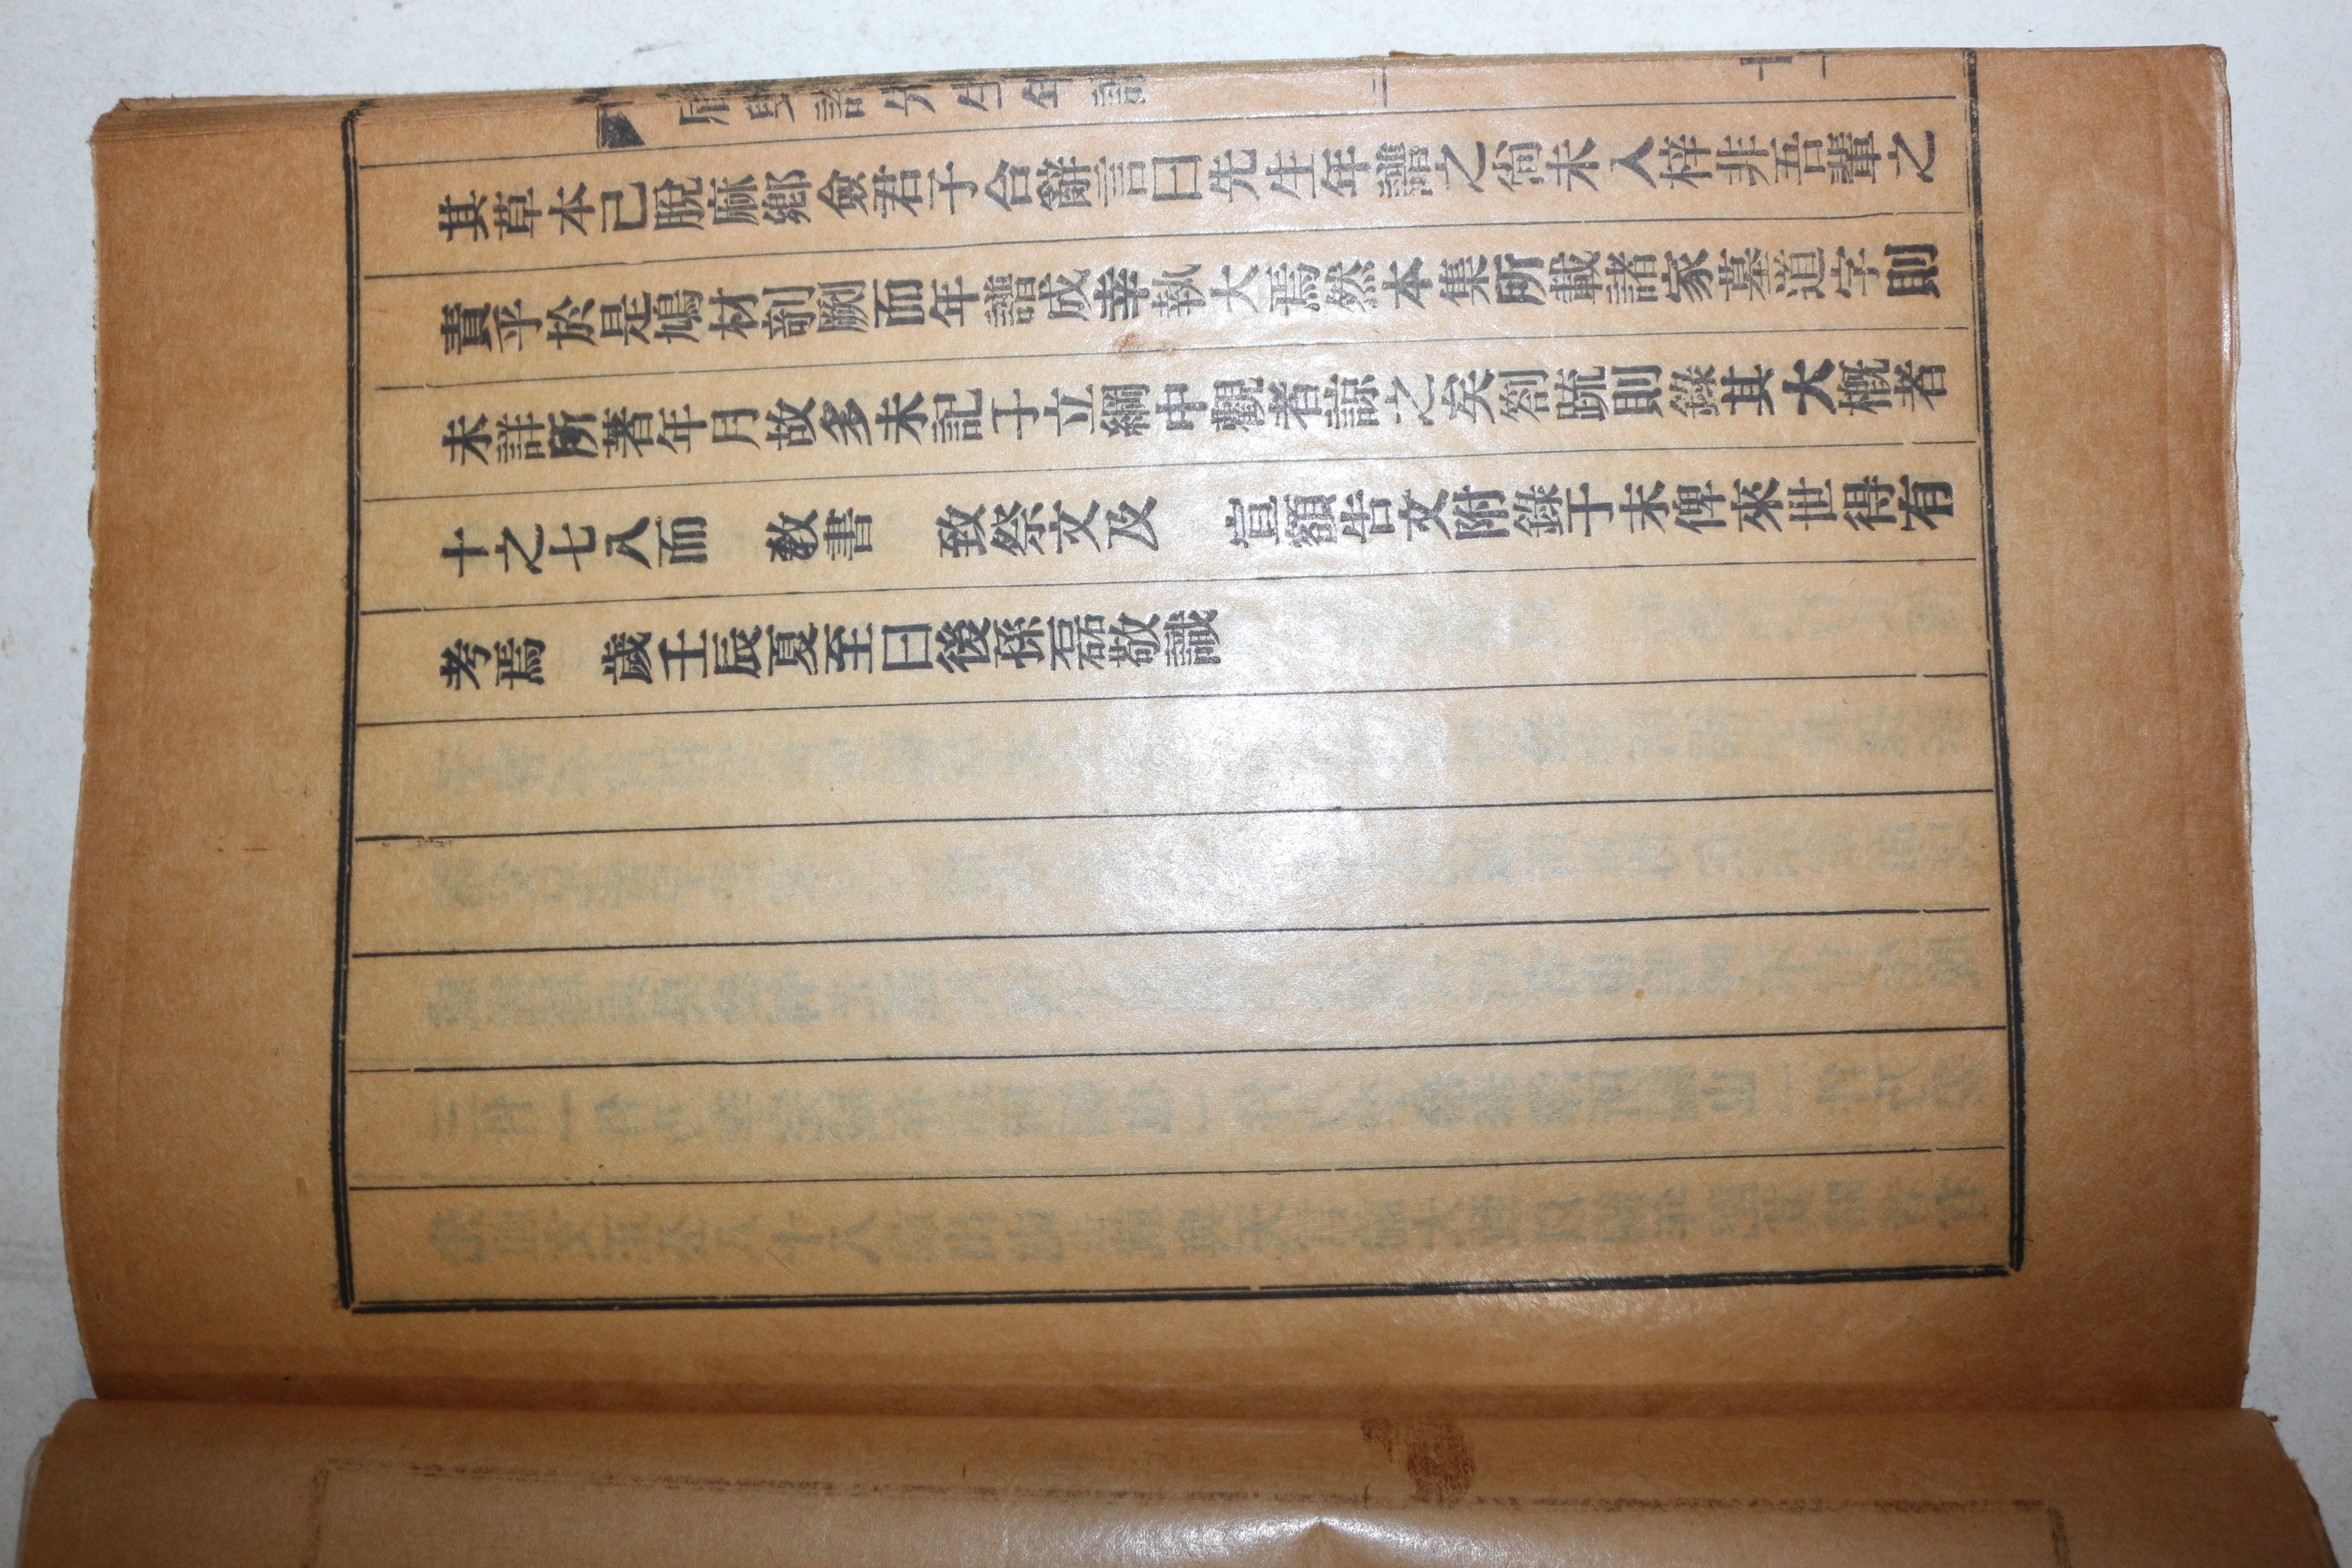 先生年譜 二 十一
其草本已脫麻鄕僉君子合辭言曰先生年譜之尙未入梓非吾輩之
責乎於是鳩材剞劂而年譜成幸孰大焉然本集所載諸家墓道字則
未詳所著年月故多未記于立綱中觀者諒之矣劄疏則錄其大槪者
十之七八而 敎書 致祭文及 宣額告文附錄于末俾來世得有
考焉 歲壬辰夏至日後孫磊敬識